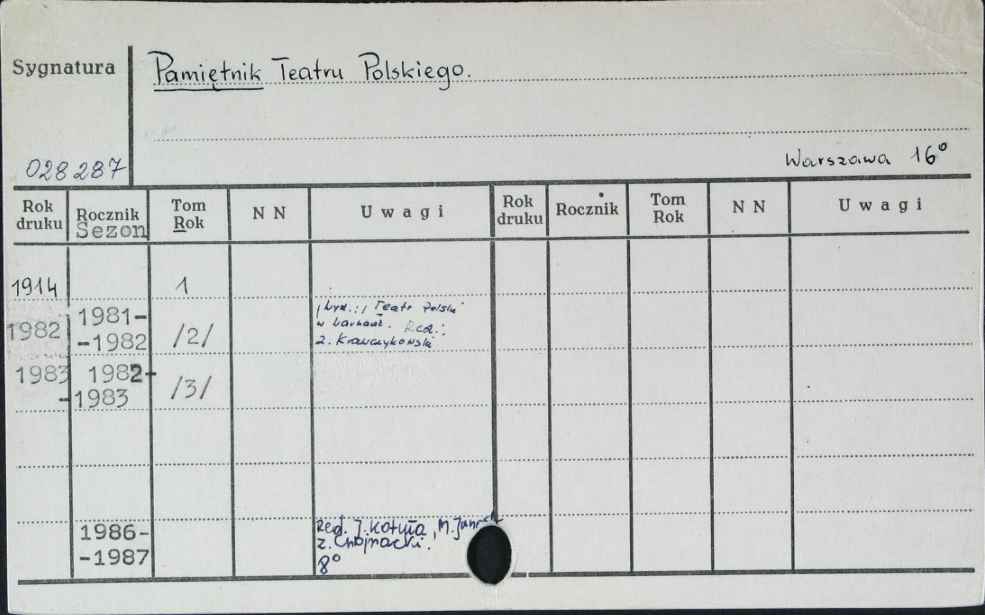 Sygnatura
Pamiętnik Teatru Polskiego.
028287
Warszawa 16°
Rok druku Rocznik Sezon Tom Rok N N Uwagi Rok druku Rocznik Tom Rok N N Uwagi
1914 1
1982 1981-
-1982 /2/ /Wyd.:/ Teatr Polski
w Warszaw. Red.:
Z. Krawczykowski
1983 1982-
-1983 /3/
1986-
-1987 Red. J. Koenig, M.
Z. Chojnacki.
8°